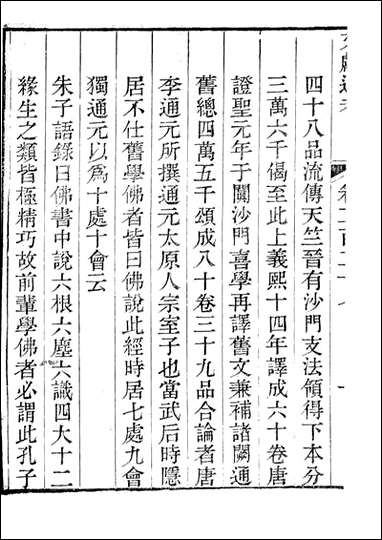 四十八品流傳天竺晉有沙門支法領得下本分
三萬六千偈至此上義熙十四年譯成六十卷唐
證聖元年于闐沙門喜學再譯舊文兼補諸闕通
舊總四萬五千頌成八十卷三十九品合論者唐
李通元所撰通元太原人宗室子也當武后時隱
居不仕舊學佛者皆曰佛說此經時居七處九會
獨通元以為十處十會云
朱子語錄曰佛書中說六根六塵六識四大十二
緣生之類皆極精巧故前輩學佛者必謂此孔子